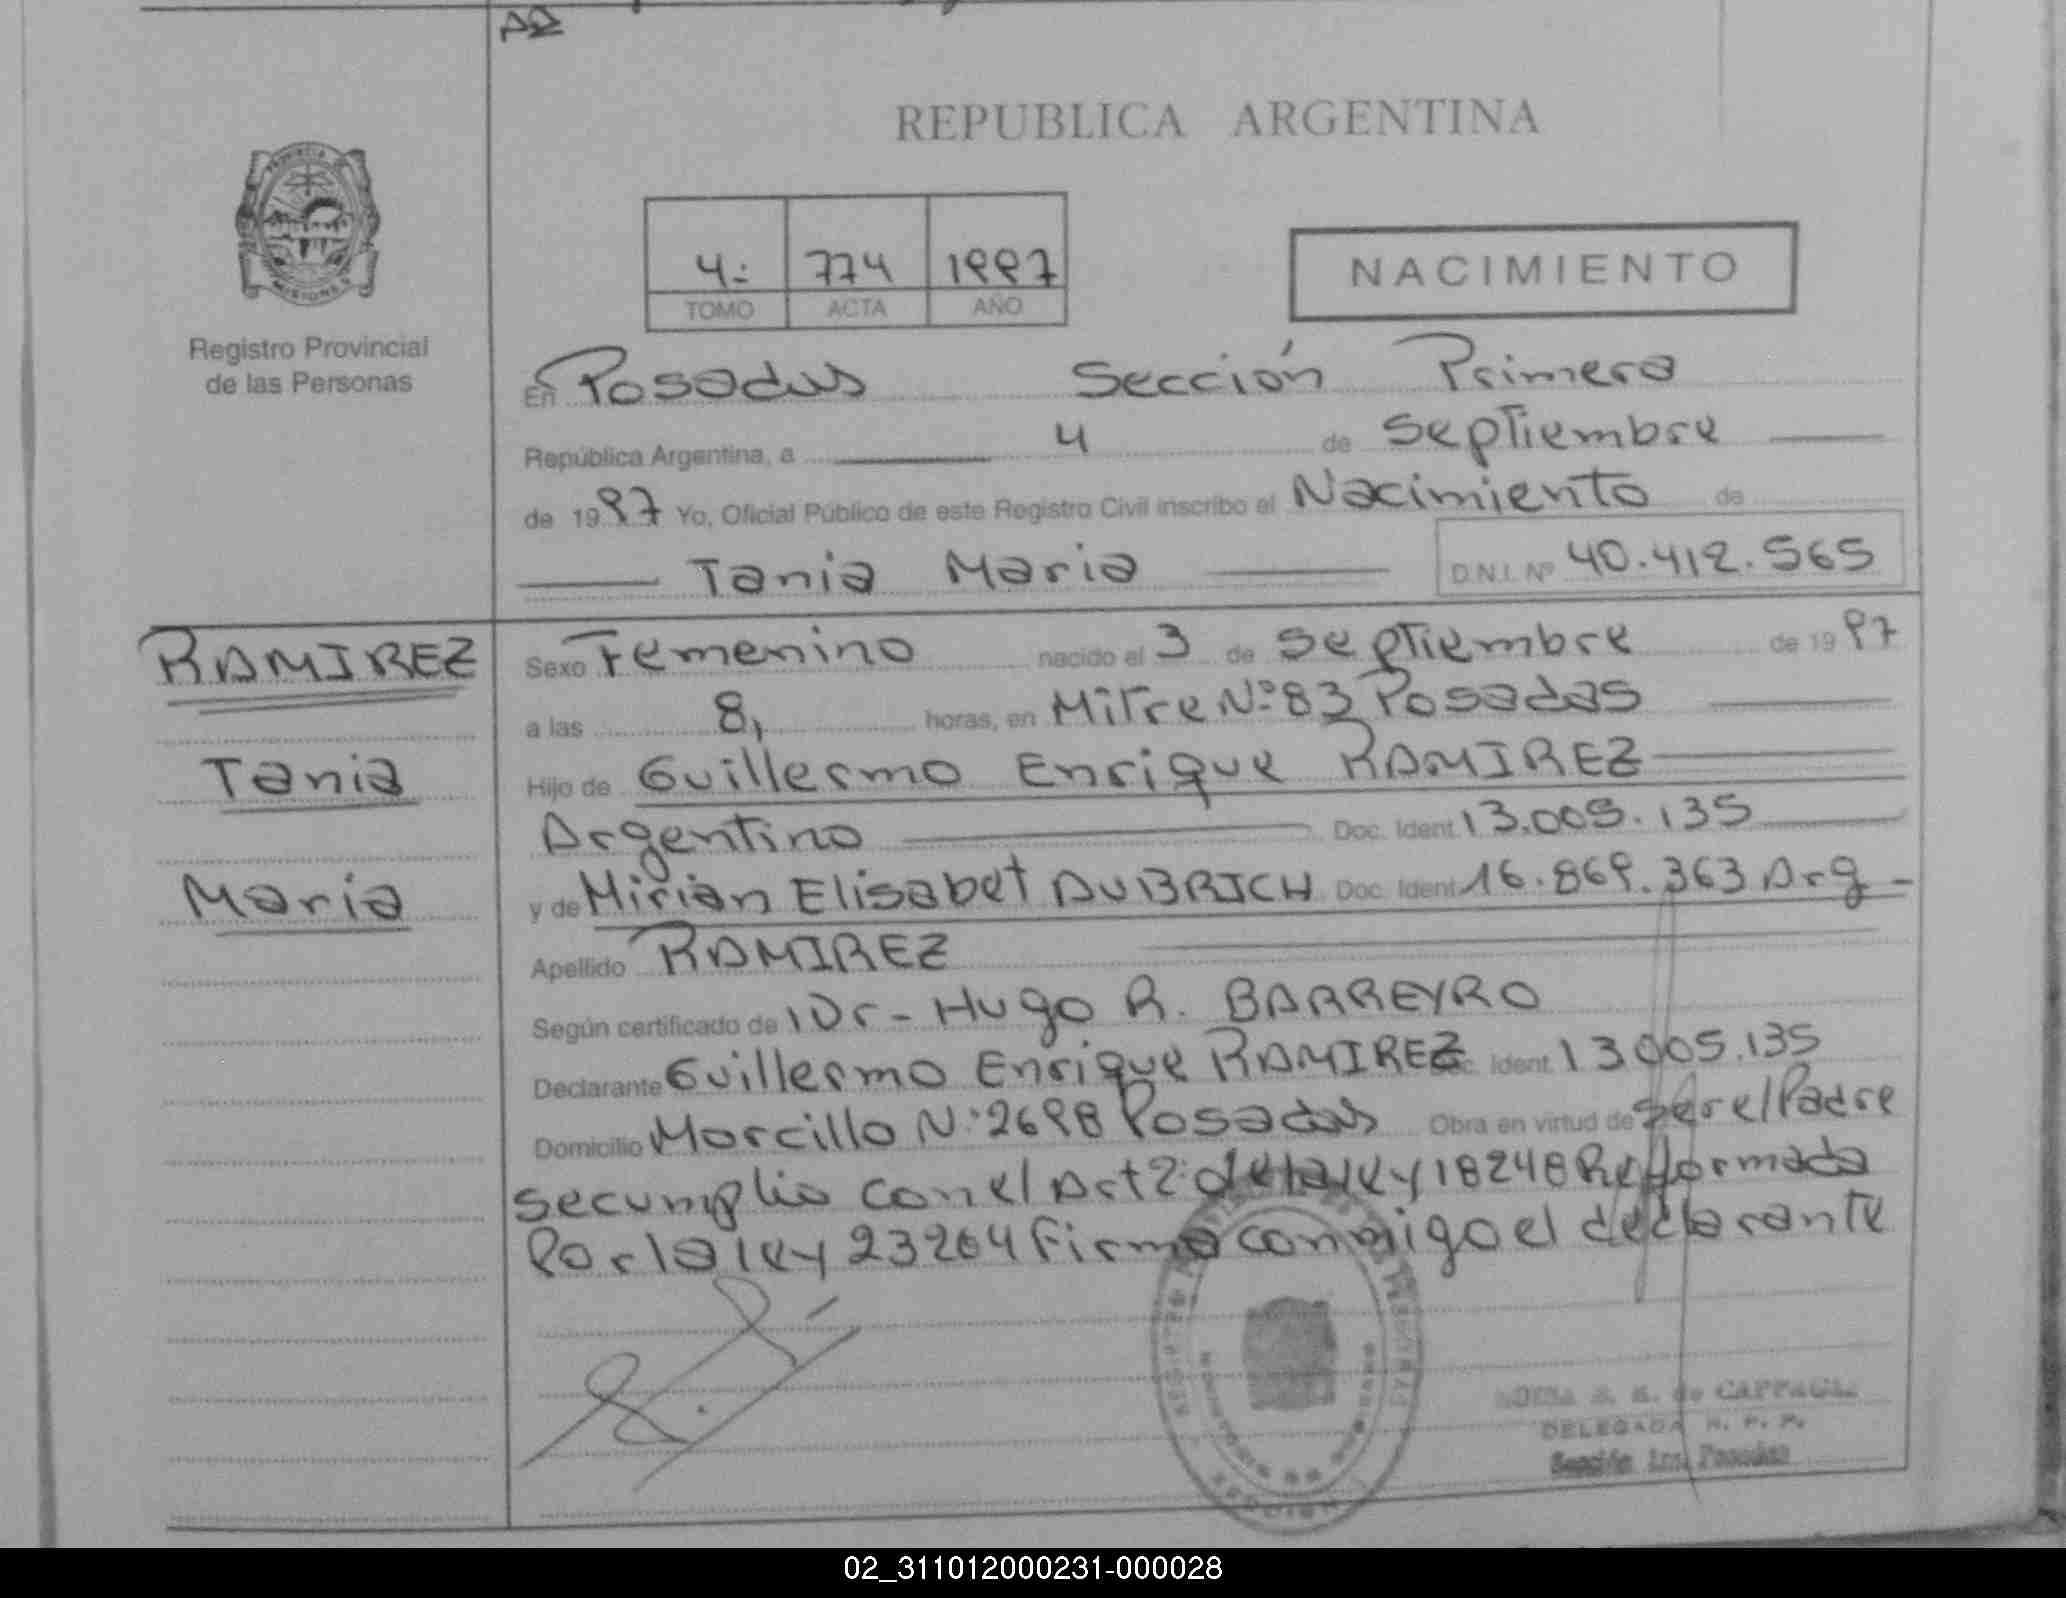 REPUBLICA ARGENTINA
PROVINCIA DE
MISIONES
Registro Provincial
de las Personas
4: 774 1997
TOMO ACTA AÑO
NACIMIENTO
En Posadas Sección Primera
República Argentina, a 4 de Septiembre
de 1997 Yo, Oficial Público de este Registro Civil inscribo el Nacimiento de
Tania Maria D.N.I. Nº 40.412.565
RAMIREZ
Tania
Maria
Sexo Femenino nacido el 3 de Septiembre de 1997
a las 8, horas, en Mitre Nº 83 Posadas
Hijo de Guillermo Enrique RAMIREZ
Argentino Doc. Ident. 13.005.135
y de Mirian Elisabet AUBRICH Doc. Ident. 16.869.363 Arg -
Apellido RAMIREZ
Según certificado de Dr - Hugo R. BARREYRO
Declarante Guillermo Enrique RAMIREZ Doc. Ident. 13.005.135
Domicilio Morcillo N: 2698 Posadas Obra en virtud de Ser el Padre
se cumplio con el Art 2: de la ley 18248 Reformada
Por la ley 23264 Firma conmigo el declarante
DELEGADA R. P. P.
Sección 1ra. Posadas
02_311012000231-000028